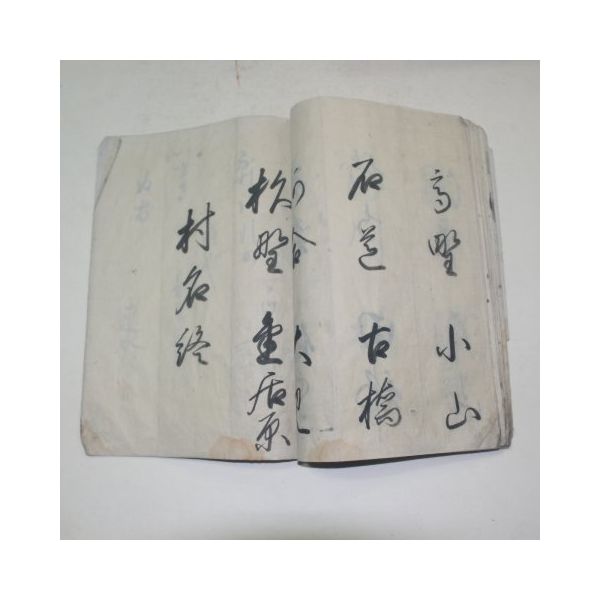 高野 小山
石道 古橋
合
杉野 金居原
村名終